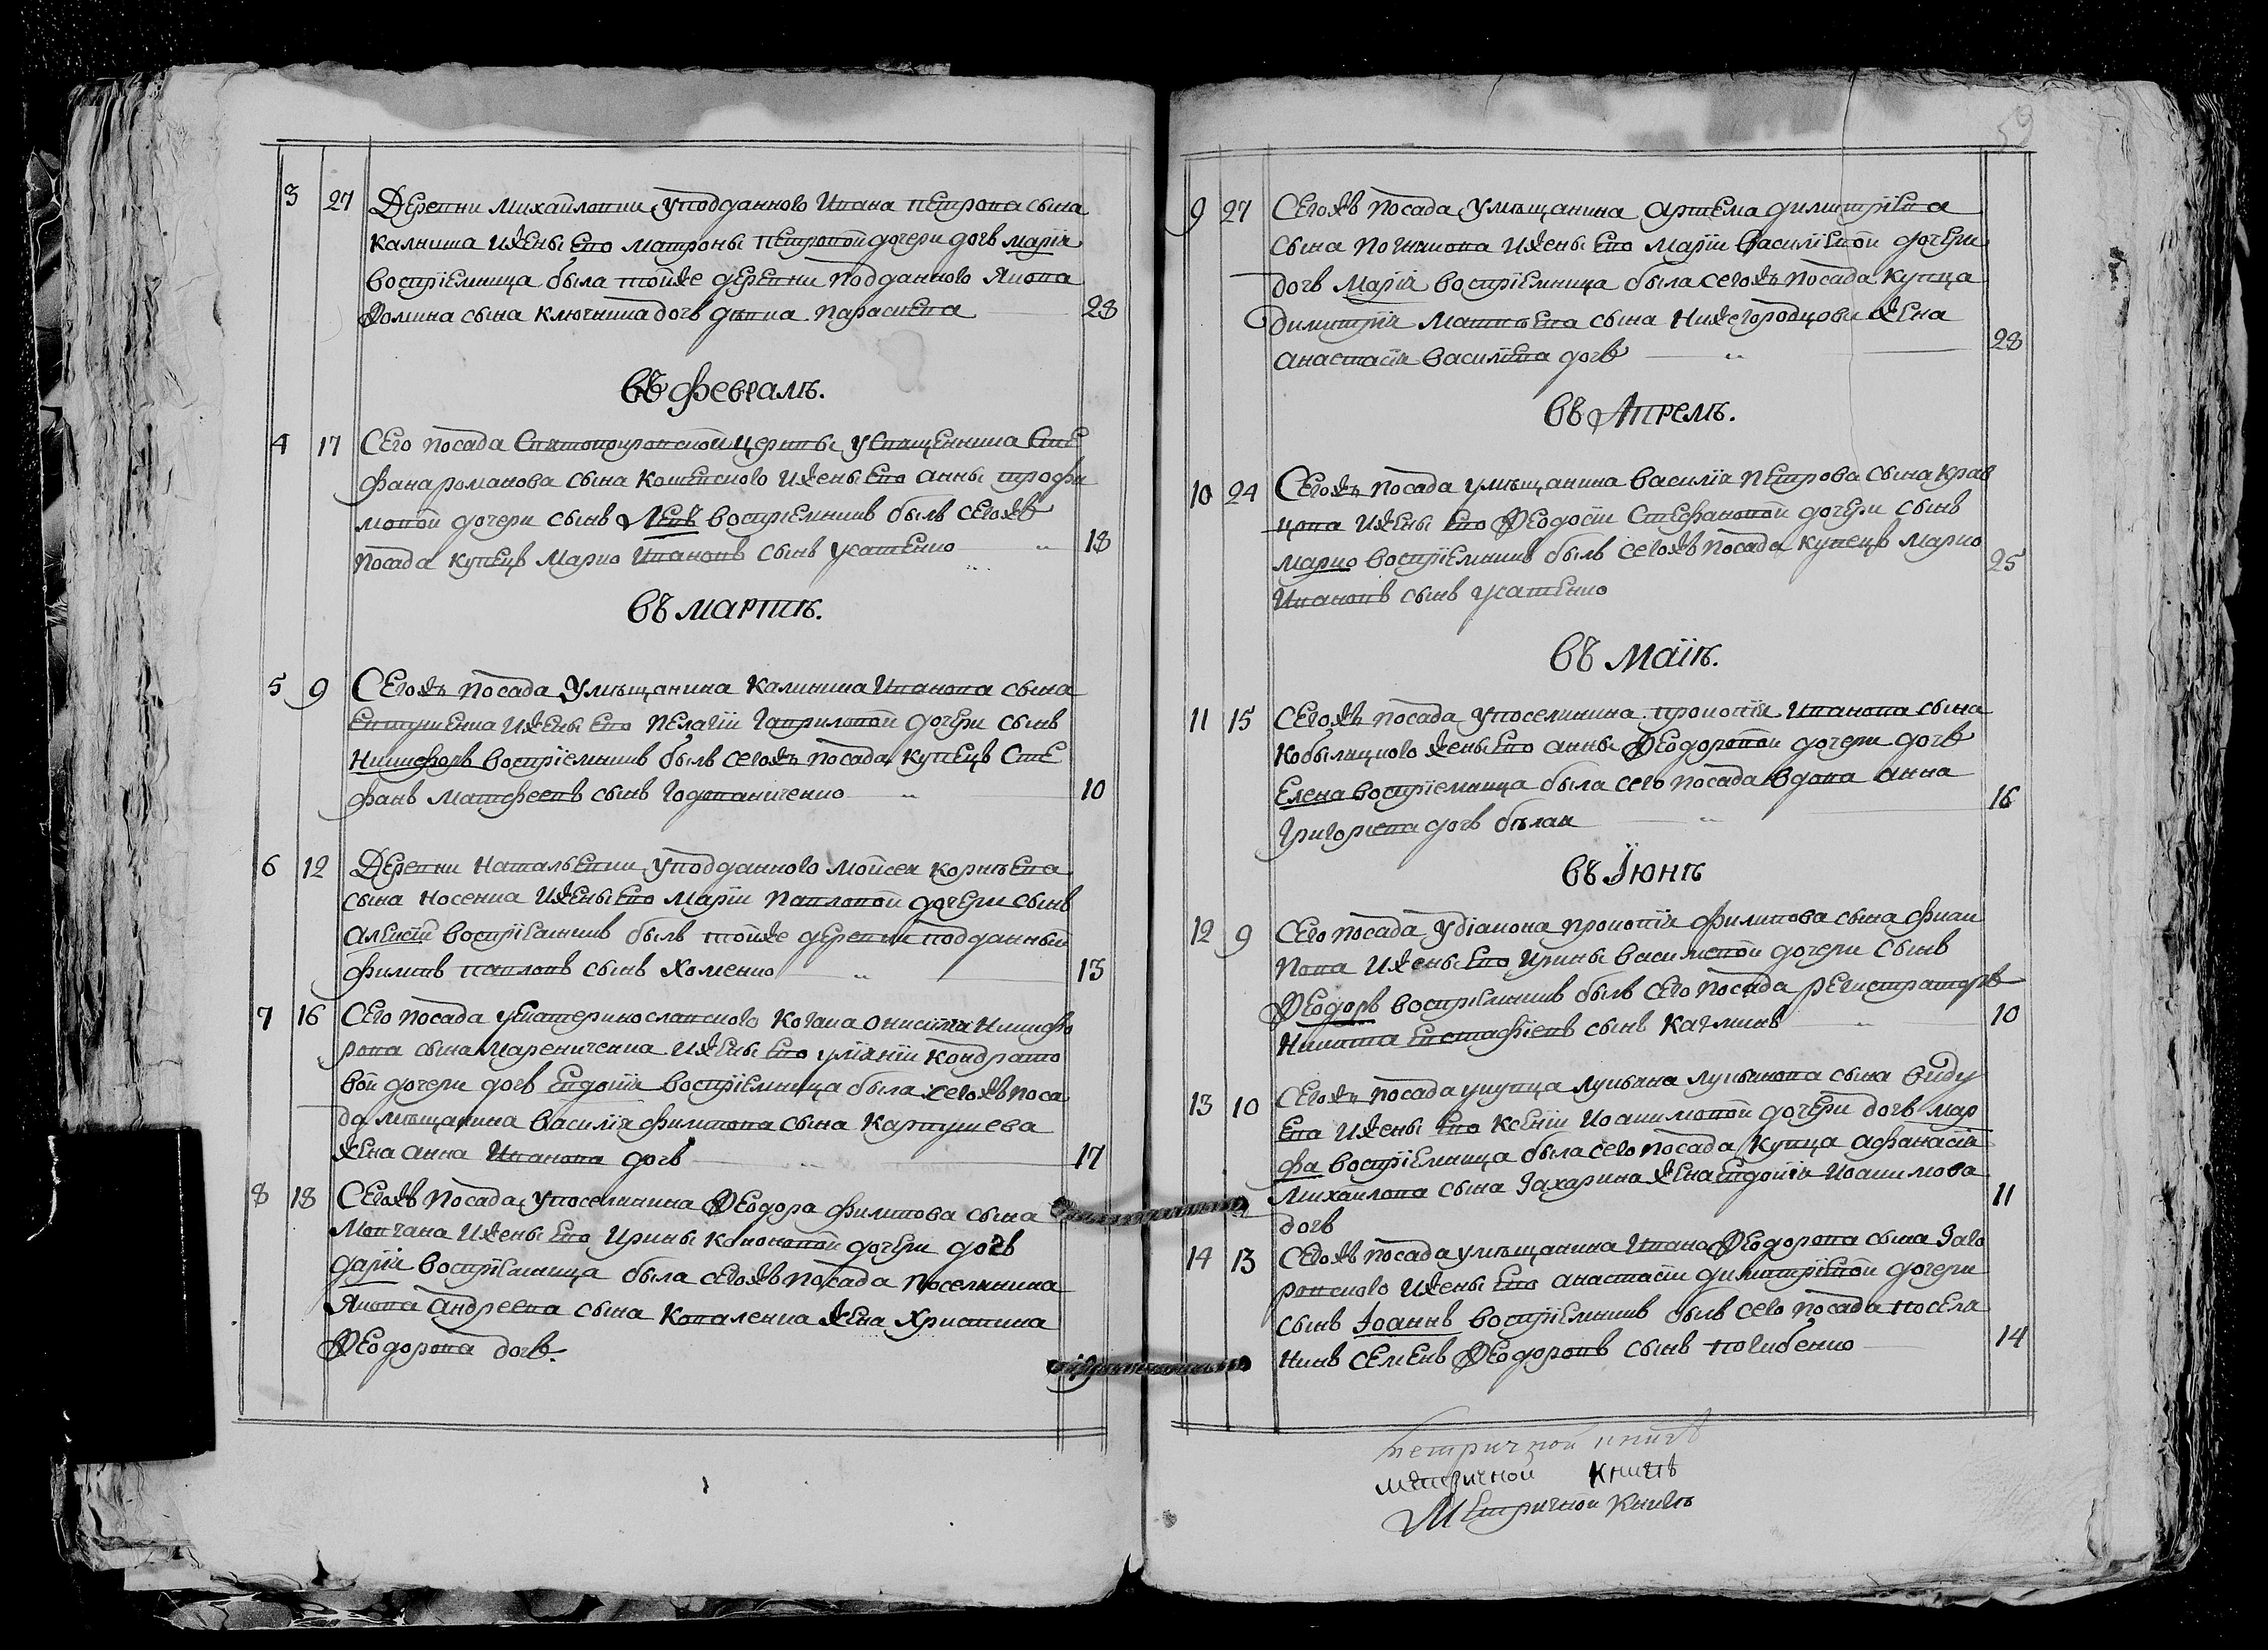 3 27 Деревни Михайловки уподданного Ивана Петрова сына
Калника ижены его Матроны Петровой дочери дочь Марія
воспріемница была тойже деревни подданного Якова
Фомина сына Ключника дочь девка Парасκева 28
въ Февралѣ.
4 17 Сего посада Святопокровской церквы усвященника Сте
фана Романова сына Кошевского ижены его Анны Трофи
мовой дочери сынъ Левъ воспріемникъ былъ сегожъ
посада купецъ Марко Ивановъ сынъ Усатенко 18
въ Мартѣ.
5 9 Сегожъ посада умѣщанина Калиника Иванова сына
Евтушенка ижены его Пелагіи Гавриловой дочери сынъ
Никифоръ воспріемникъ былъ сегожъ посада купецъ Сте
фанъ Матфеевъ сынъ Годованиченко 10
6 12 Деревни Натальевки уподданного Мойсея Корнѣева
сына Носенка ижены его Маріи Павловой дочери сынъ
Алексій воспріемникъ былъ тойже деревни подданный
Филипъ Павловъ сынъ Хоменко 13
7 16 Сего посада уекатеринославского козака Онисима Никифо
рова сына Марениченка ижены его Уліяніи Кондрато
вой дочери дочь Евдокія воспріемница была сегожъ поса
да мѣщанина Василія Филипова сына Картушева
жена Анна Иванова дочь 17
8 18 Сегожъ посада упоселянина Феодора Филипова сына
Мовчана ижены его Ирины Кононовой дочери дочь
Дарія воспріемница была сегожъ посада поселянина
Якова Андреева сына Коваленка жена Христина
Феодорова дочь.
59
9 27 Сегожъ посада умѣщанина Артема Димитріева
сына Логинова ижены его Маріи Василіевой дочери
дочь Марія воспріемница была сегожъ посада купца
Димитрія Матвѣева сына Нижегородцови жена
Анастасія Василіева дочь 28
въ Апрелѣ.
10 24 Сегожъ посада умѣщанина Василія Петрова сына Крав
цова ижены его Феодосіи Стефановой дочери сынъ
Марко воспріемникъ былъ сегожъ посада купецъ Марко
Ивановъ сынъ Усатенко 25
въ Маіѣ.
11 15 Сегожъ посада упоселянина Прокопія Иванова сына
Кобыляцкого жены его Анны Феодоровой дочери дочь
Елена воспріемница была сего посада вдова Анна
Григоріева дочь Бѣлая 16
въ Іюнѣ
12 9 Сего посада удіакона Прокопія Филипова сына Фиал
кова ижены его Ирины Василіевой дочери сынъ
Феодоръ воспріемникъ былъ сего посада регистраторъ
Никита Евстафіевъ сынъ Качминъ 10
13 10 Сегожъ посада укупца Лукьяна Лукьянова сына Виду
ева ижены его Ксеніи Иоакимовой дочери дочь Мар
фа воспріемница была сего посада купца Афанасія
Михайлова сына Захарина жена Евдокія Иоакимова
дочь 11
14 13 Сегожъ посада умѣщанина Ивана Феодорова сына Заго
ровского ижены его Анастасіи Димитріевой дочери
сынъ Іоаннъ воспріемникъ былъ сего посада посела
нинъ Семенъ Феодоровъ сынъ Погибенко 14
метричной книгѣ
метричной книгѣ
Метричной книгѣ